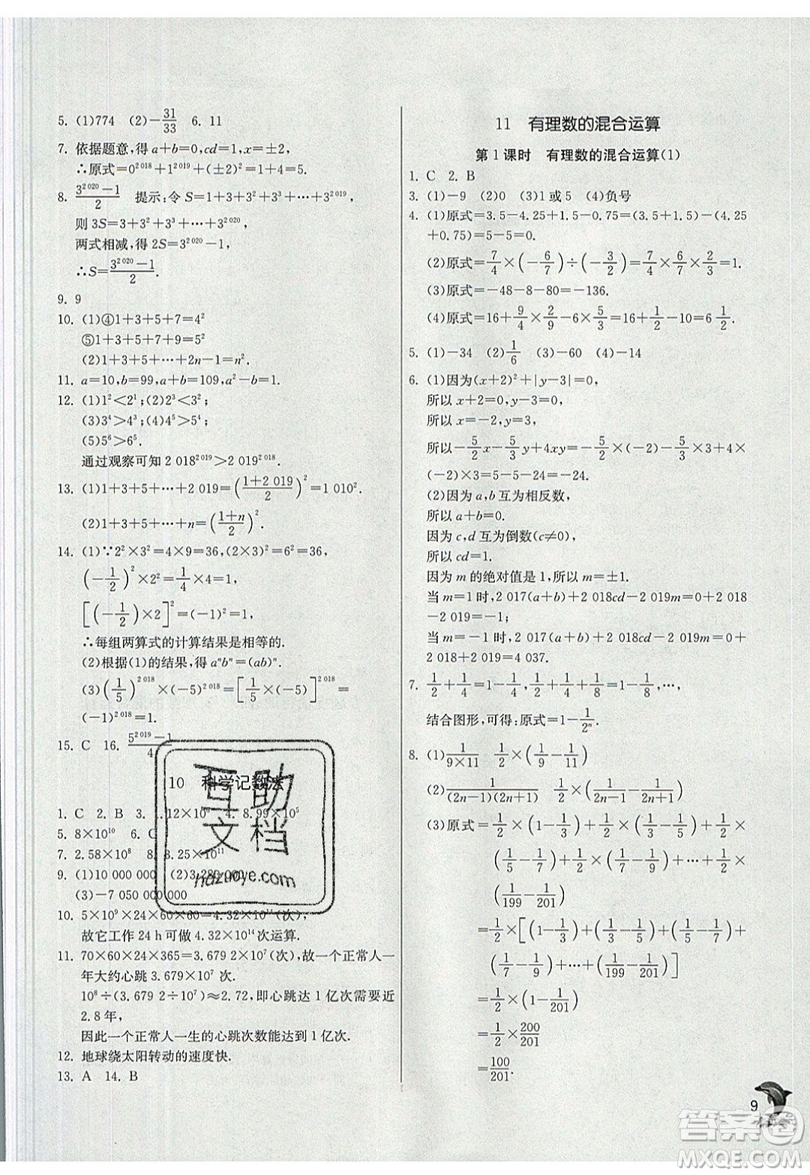 5. (1)774 (2)-31/33 6. 11
7. 依据题意,得 a+b=0,cd=1,x=±2,
∴原式=0^2 018+1^2 019=0+1=1.
8. (3^2 020-1)/2 提示:令 S=1+3+3^2+3^3+…+3^2 019,
则 3S=3+3^2+3^3+…+3^2 020,
两式相减,得 2S=3^2 020-1,
∴S=(3^2 020-1)/2.
9. 9
10. (1)④1+3+5+7=4^2
⑤1+3+5+7+9=5^2
(2)1+3+5+7+…+(2n-1)=n^2.
11. a=10,b=99,a+b=10+99=109.
12. (1)1^2<2^1;(2)2^3<3^2;
(3)3^4>4^3;(4)4^5>5^4;
(5)5^6>6^5.
通过观察可知 2 018^2019>2 019^2 018.
13. (1)1+3+5+…+2 019=((1+2 019)/2)^2=1 010^2.
(2)1+3+5+…+n=((1+n)/2)^2.
14. (1)∵2^2×3^2=4×9=36,(2×3)^2=6^2=36,
(-1/2)^2×2^2=1/4×4=1,
[(-1/2)×2]^2=(-1)^2=1,
∴每组两算式的计算结果是相等的.
(2)根据(1)的结果,得 a^n b^n=(ab)^n.
(3)(1/5)^2 018×(-5)^2 018=[1/5×(-5)]^2 018=
(-1)^2 018=1.
15. C 16. (5^2 019-1)/4
10 科学记数法
1. C 2. B 3. 1.12×10^ 4. 8.99×10^5
5. 8×10^10 6. C
7. 2.58×10^8 8. 6.48×10^11
9. (1)10 000 000 (2)3 280 000
(3)-7 050 000 000
10. 5×10^9×24×60×60=4.32×10^14(次),
故它工作 24 h 可做 4.32×10^14次运算.
11. 70×60×24×365=3.679 2×10^7(次),故一个正常人一
年大约心跳 3.679 2×10^7次.
10^8÷(3.679 2×10^7)≈2.72,即心跳达 1 亿次需要近
2.8 年,
因此一个正常人一生的心跳次数能达到 1 亿次.
12. 地球绕太阳转动的速度快.
13. A 14. B
11 有理数的混合运算
第 1 课时 有理数的混合运算(1)
1. C 2. B
3. (1)-9 (2)0 (3)1 或 5 (4)负号
4. (1)原式=3.5-4.25+1.5-0.75=(3.5+1.5)-(4.25
+0.75)=5-5=0.
(2)原式=7/4×(-6/7)÷(-3/2)=7/4×6/7×2/3=1.
(3)原式=-48-8-80=-136.
(4)原式=16+9/4×2/9-6×2=16+1/2-12=4 1/2.
5. (1)-34 (2)1/6 (3)-60 (4)-14
6. (1)因为(x+2)^2+|y-3|=0,
所以 x+2=0,y-3=0,
所以 x=-2,y=3,
所以-5/2x-5/3y+4xy=-5/2×(-2)-5/3×3+4×
(-2)×3=5-5-24=-24.
(2)因为 a,b 互为相反数,
所以 a+b=0.
因为 c,d 互为倒数(c≠0),
所以 cd=1.
因为 m 的绝对值是 1,所以 m=±1.
当 m=1 时,2 017(a+b)+2 018cd-2 019m=0+2 018
-2 019=-1;
当 m=-1 时,2 017(a+b)+2 018cd-2 019m=0+
2 018+2 019=4 037.
7. 1/2+1/4=1-1/4,1/2+1/4+1/8=1-1/8,…,
结合图形,可得:原式=1-1/2^n.
8. (1)1/(9×11) 1/2×(1/9-1/11)
(2)1/((2n-1)(2n+1)) 1/2×(1/(2n-1)-1/(2n+1))
(3)原式=1/2×(1-1/3)+1/2×(1/3-1/5)+1/2×
(1/5-1/7)+1/2×(1/7-1/9)+…+1/2×
(1/199-1/201)
=1/2×[(1-1/3)+(1/3-1/5)+(1/5-1/7)
+(1/7-1/9)+…+(1/199-1/201)]
=1/2×(1-1/201)
=1/2×200/201
=100/201.
9
互助
文档
hdzuoye.com
答案圈
MXQE.COM